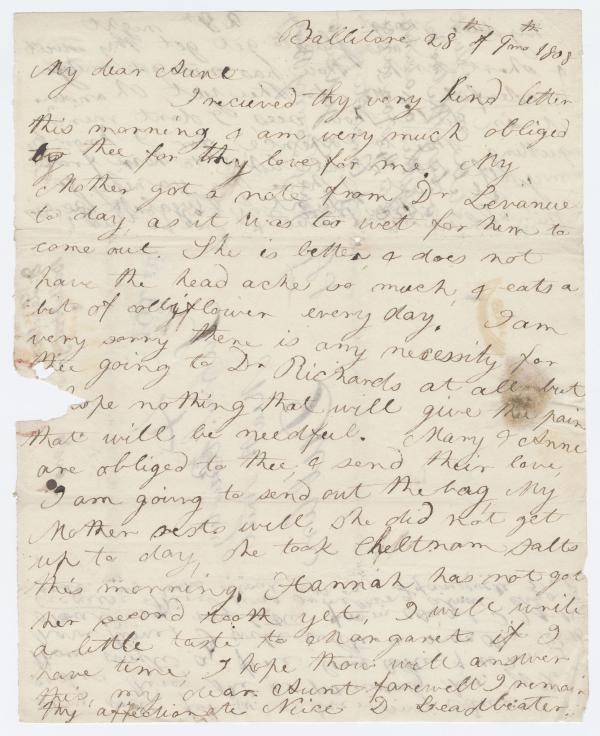 Ballitore 28th of 9mo 1808
My dear Aunt
I recieved thy very kind letter
this morning & am very much obliged
to thee for thy love for me. My
Mother got a note from Dr Levanue
to day, as it was too wet for him to
come out. She is better, & does not
have the head ache so much, & eats a
bit of colliflower every day. I am
very sorry there is any necessity for
thee going to Dr Richards at all but
hope nothing that will give thee pain
that will be needful. Mary & Anne
are obliged to thee, & send their love,
I am going to send out the bag, My
Mother rests well, she did not get
up to day, she took Cheltnam salts
this morning. Hannah has not got
her second tooth yet, I will write
a little taste to Margaret if I
have time, I hope thou will answer
this, my dear Aunt farewell I remain
thy affectionate Niece D Leadbeater.